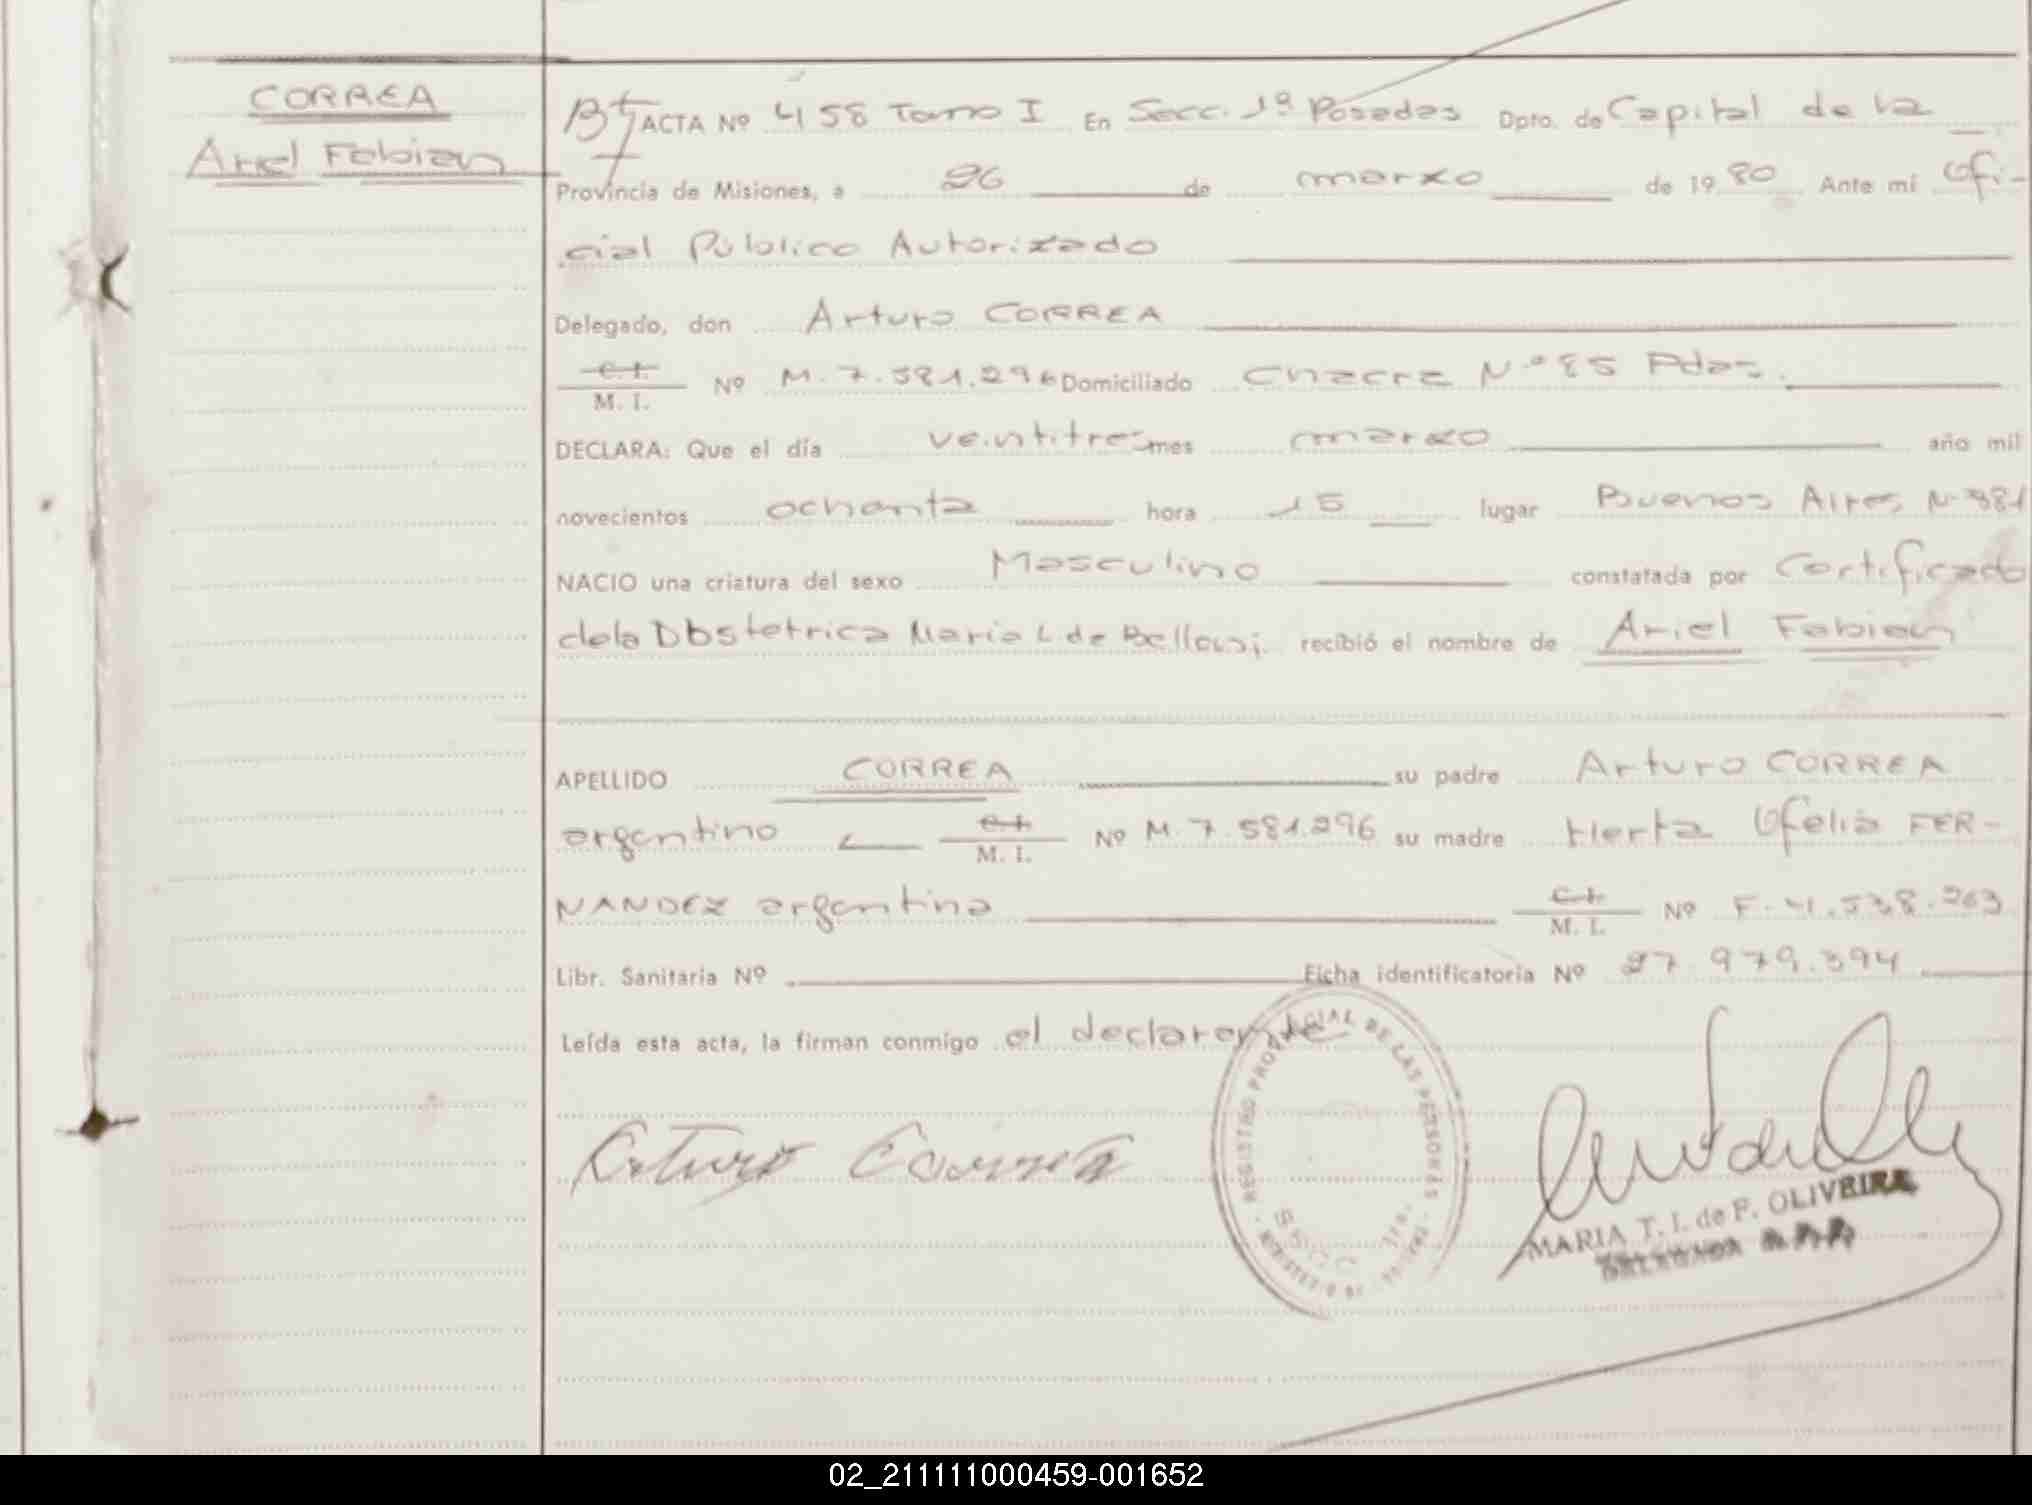 CORREA
Ariel Fabian
ACTA Nº 458 Tomo I En Secc. 1ª Posadas Dpto. de Capital de la
Provincia de Misiones, a 26 de marzo de 1980 Ante mí Ofi-
cial Público Autorizado
Delegado, don Arturo CORREA
C.I.
M. I. Nº M. 7.581.296 Domiciliado Chacra N.º 85 Pdas.
DECLARA: Que el día veintitres mes marzo año mil
novecientos ochenta hora 15 lugar Buenos Aires N.
NACIO una criatura del sexo Masculino constatada por Certificado
dela Obstetrica Maria L de recibió el nombre de Ariel Fabian
APELLIDO CORREA su padre Arturo CORREA
argentino C.I.
M. I. Nº M. 7.581.296 su madre Herta Ofelia FER-
NANDEZ argentina C.I.
M. I. Nº F. 4.538.263
Libr. Sanitaria Nº Ficha identificatoria Nº 27.979.394
Leída esta acta, la firman conmigo el declarante
Arturo Correa
REGISTRO PROVINCIAL DE LAS PERSONAS
SECC. 1ra.
MARIA T. I. de F. OLIVEIRA
DELEGADA
02_211111000459-001652